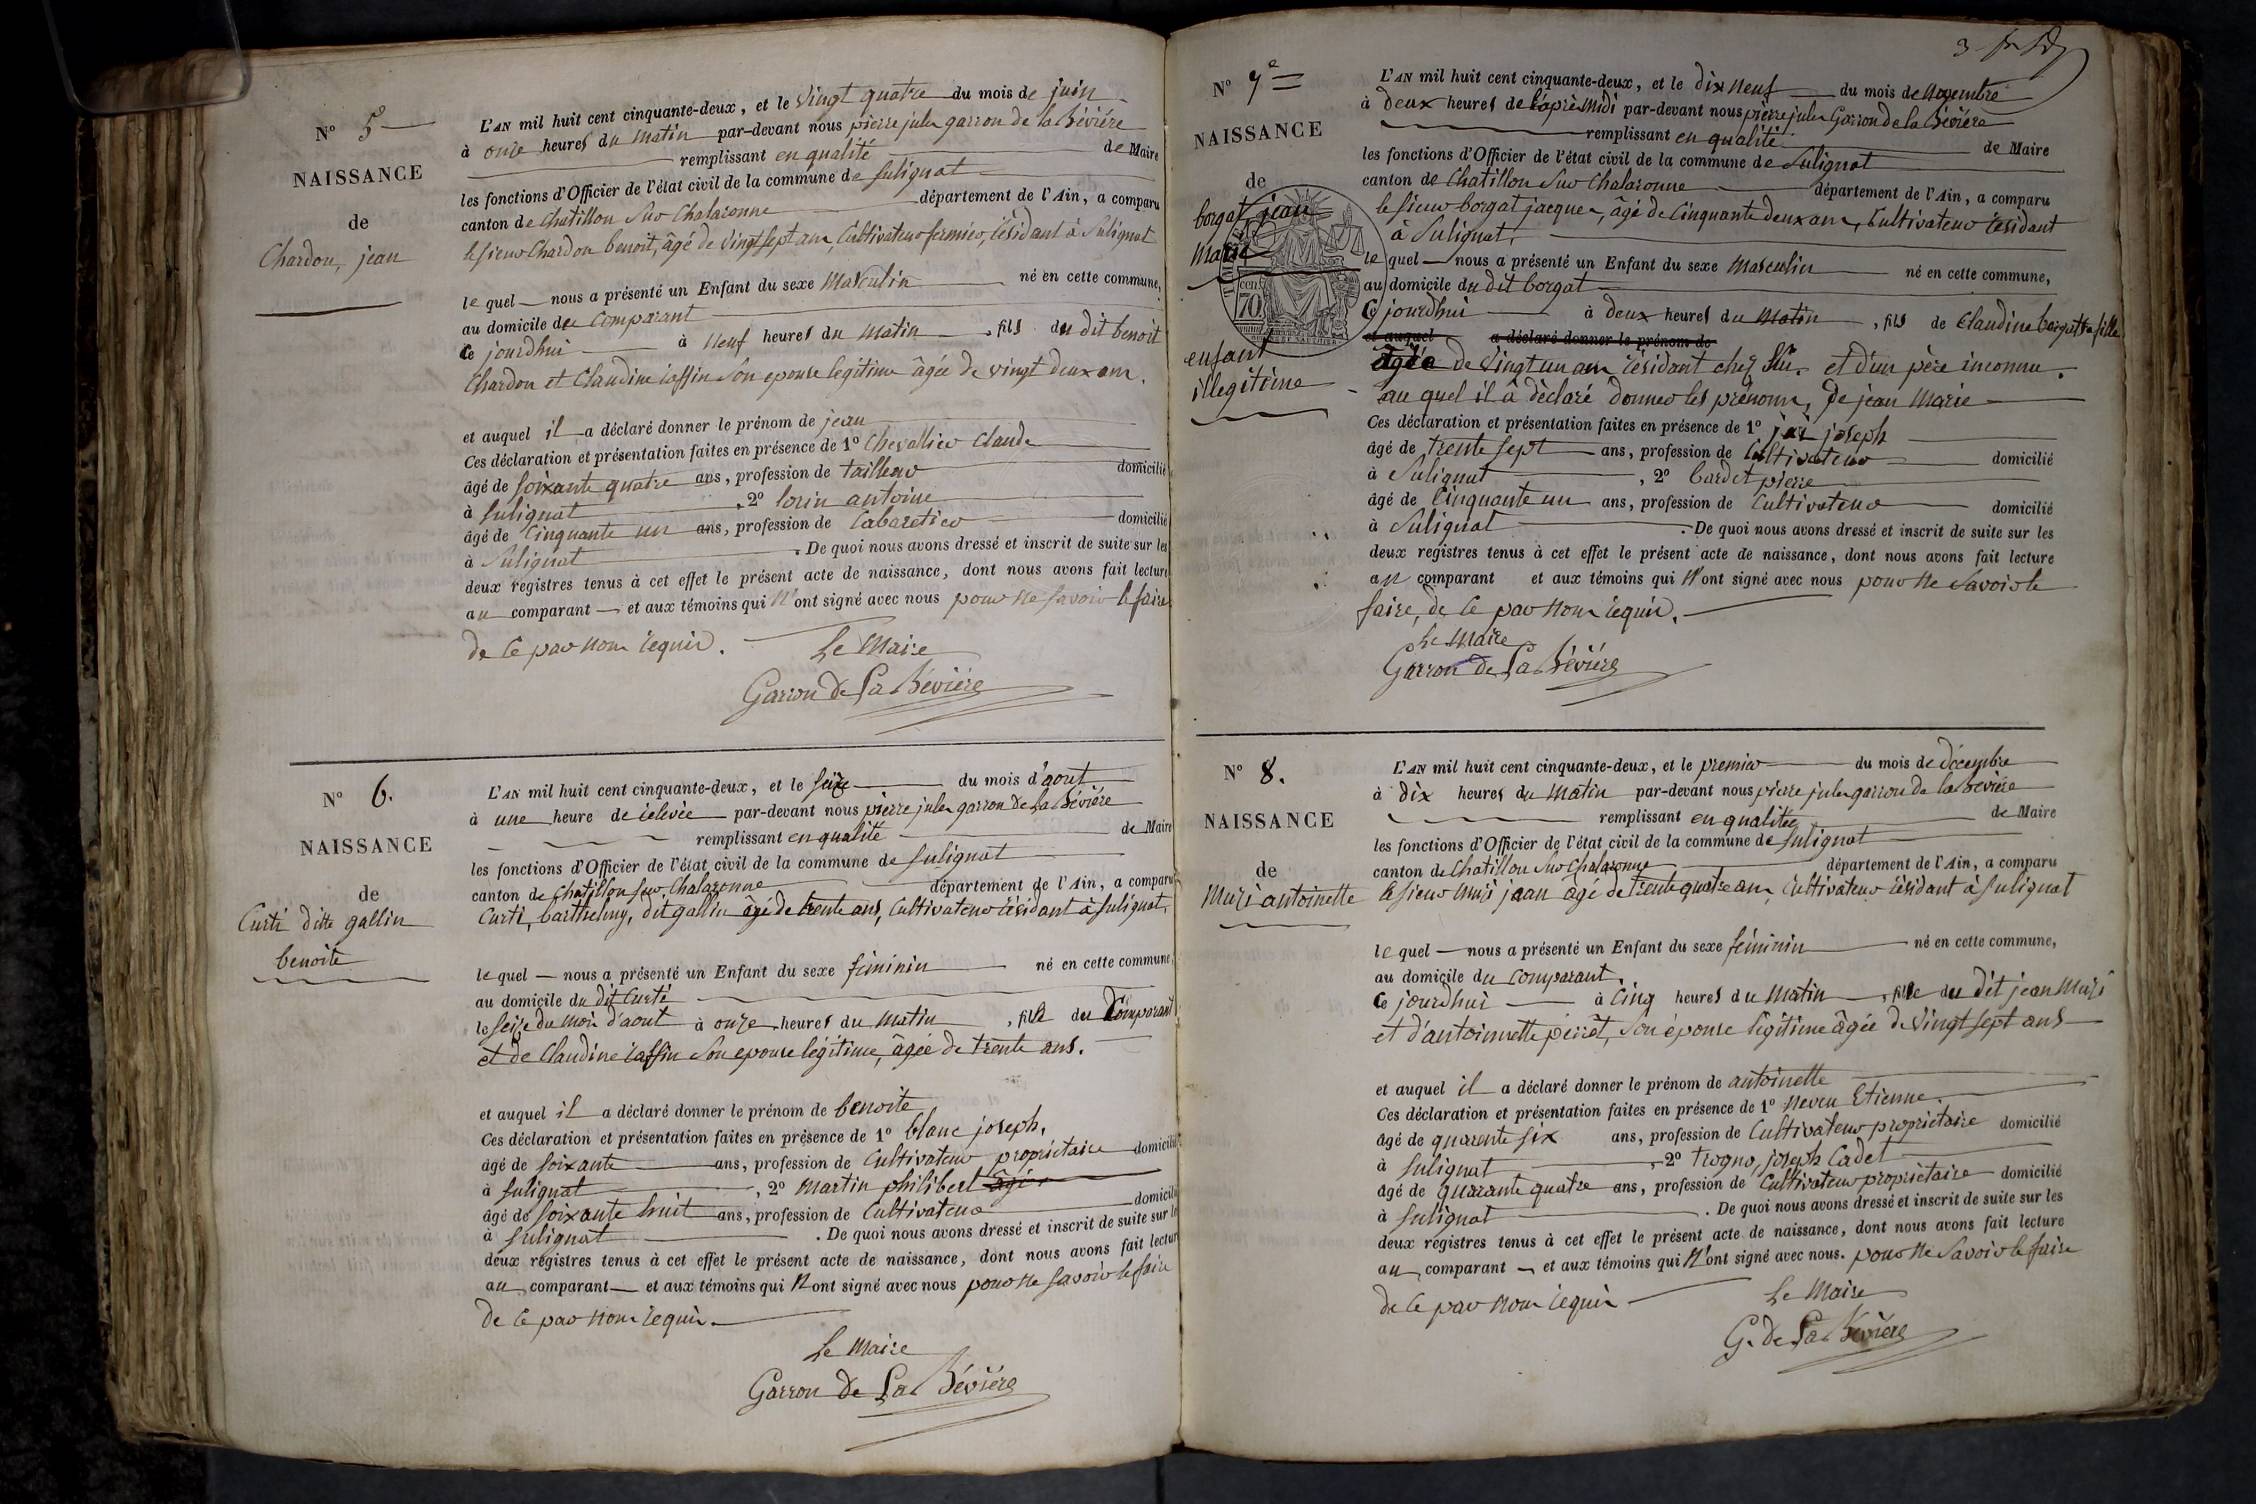 N° 5
NAISSANCE
de
Chardon, jean
L'AN mil huit cent cinquante-deux, et le vingt quatre du mois de juin
à onze heures du matin par-devant nous pierre jules garron de la Bévière
remplissant en qualité de Maire
les fonctions d'Officier de l'état civil de la commune de Sulignat
canton de Chatillon sur Chalaronne département de l'Ain, a comparu
le sieur Chardon benoit, âgé de vingt sept ans, Cultivateur fermier, résidant à Sulignat
le quel nous a présenté un Enfant du sexe Masculin né en cette commune,
au domicile du Comparant
Ce jourdhui à neuf heures du matin, fils du dit benoit
Chardon et Claudine raffin son epouse legitime âgée de vingt deux ans.
et auquel il a déclaré donner le prénom de jean
Ces déclaration et présentation faites en présence de 1° Chevallier Claude
âgé de soixante quatre ans, profession de tailleur domicilié
à Sulignat, 2° lorin antoine
âgé de Cinquante un ans, profession de Cabaretier domicilié
à Sulignat. De quoi nous avons dressé et inscrit de suite sur les
deux registres tenus à cet effet le présent acte de naissance, dont nous avons fait lecture
au comparant et aux témoins qui n'ont signé avec nous pour ne savoir le faire
de ce par nous requis.
Le Maire
Garron de La Bévière
N° 6.
NAISSANCE
de
Curti ditte gallin
benoite
L'AN mil huit cent cinquante-deux, et le seize du mois d'aout
à une heure de relevée par-devant nous pierre jules garron de La Bévière
remplissant en qualité de Maire
les fonctions d'Officier de l'état civil de la commune de Sulignat
canton de Chatillon sur Chalaronne département de l'Ain, a comparu
Curti, barthelmy, dit gallin âgé de trente ans, Cultivateur résidant à Sulignat,
le quel nous a présenté un Enfant du sexe féminin né en cette commune,
au domicile du dit Curti
le seize du mois d'aout à onze heures du matin, fille du Comparant
et de Claudine raffin son epouse légitime, âgée de trente ans.
et auquel il a déclaré donner le prénom de benoite
Ces déclaration et présentation faites en présence de 1° blanc joseph,
âgé de soixante ans, profession de Cultivateur propriétaire domicilié
à Sulignat, 2° Martin philibert âgé
âgé de soixante huit ans, profession de Cultivateur domicilié
à Sulignat. De quoi nous avons dressé et inscrit de suite sur le
deux registres tenus à cet effet le présent acte de naissance, dont nous avons fait lectur
au comparant et aux témoins qui n'ont signé avec nous pour ne savoir le faire
de ce par nous requis.
Le Maire
Garron de La Bévière
3
N° 7e
NAISSANCE
de
borgat, jean
Marie
enfant
illegitime
cent
70
L'AN mil huit cent cinquante-deux, et le dix neuf du mois de Novembre
à deux heures de l'après midi par-devant nous pierre jules Garron de la Bévière
remplissant en qualité de Maire
les fonctions d'Officier de l'état civil de la commune de Sulignat
canton de Chatillon sur Chalaronne département de l'Ain, a comparu
le sieur borgat jacques, âgé de Cinquante deux ans, Cultivateur résidant
à Sulignat,
le quel nous a présenté un Enfant du sexe Masculin né en cette commune,
au domicile du dit borgat
Ce jourdhui à deux heures du matin, fils de Claudine borgat sa fille
et auquel a déclaré donner le prénom de
âgée de vingt un ans résidant chez lui. et d'un père inconnu.
au quel il a déclaré donner les prénoms, de jean Marie
Ces déclaration et présentation faites en présence de 1° joseph
âgé de trente sept ans, profession de Cultivateur domicilié
à Sulignat, 2° bardet pierre
âgé de Cinquante un ans, profession de Cultivateur domicilié
à Sulignat. De quoi nous avons dressé et inscrit de suite sur les
deux registres tenus à cet effet le présent acte de naissance, dont nous avons fait lecture
au comparant et aux témoins qui n'ont signé avec nous pour ne savoir le
faire, de ce par nous requis.
Le Maire
Garron de La Bévière
N° 8.
NAISSANCE
de
Muzi antoinette
L'AN mil huit cent cinquante-deux, et le premier du mois de décembre
à dix heures du matin par-devant nous pierre jules garron de la Bévière
remplissant en qualitée de Maire
les fonctions d'Officier de l'état civil de la commune de Sulignat
canton de Chatillon sur Chalaronne département de l'Ain, a comparu
le sieur Muzi jean âgé de trente quatre ans, Cultivateur résidant à Sulignat
le quel nous a présenté un Enfant du sexe féminin né en cette commune,
au domicile du comparant.
Ce jourdhui à cinq heures du matin, fille du dit jean Muzi
et d'antoinette perret, son épouse légitime âgée de vingt sept ans
et auquel il a déclaré donner le prénom de antoinette
Ces déclaration et présentation faites en présence de 1° neveu Etienne
âgé de quarente six ans, profession de Cultivateur propriétaire domicilié
à Sulignat, 2° trogno, joseph Cadet
âgé de quarante quatre ans, profession de Cultivateur propriétaire domicilié
à Sulignat. De quoi nous avons dressé et inscrit de suite sur les
deux registres tenus à cet effet le présent acte de naissance, dont nous avons fait lecture
au comparant et aux témoins qui n'ont signé avec nous. pour ne savoir le faire
de ce par nous requis
Le Maire
G. de La Bévière